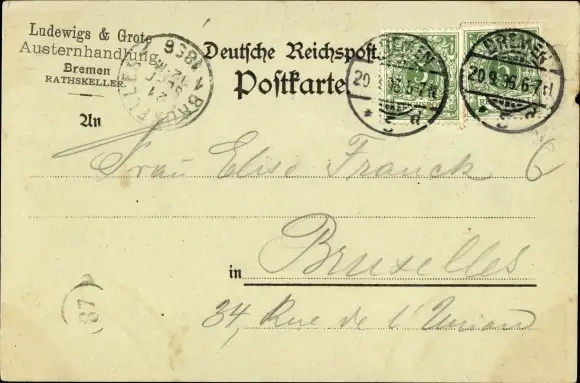 Ludewigs & Grote
Austernhandlung
Bremen
RATHSKELLER.
Deutsche Reichspost
Postkarte
BREMEN
20.9.96.5-7N
* 5 d
BREMEN
20.9.96.5-7N
* 5 d
BRUXELLES
21 SEPT
1896
An
Frau Elise Franck
in Bruxelles
34, Rue de l'Union
87